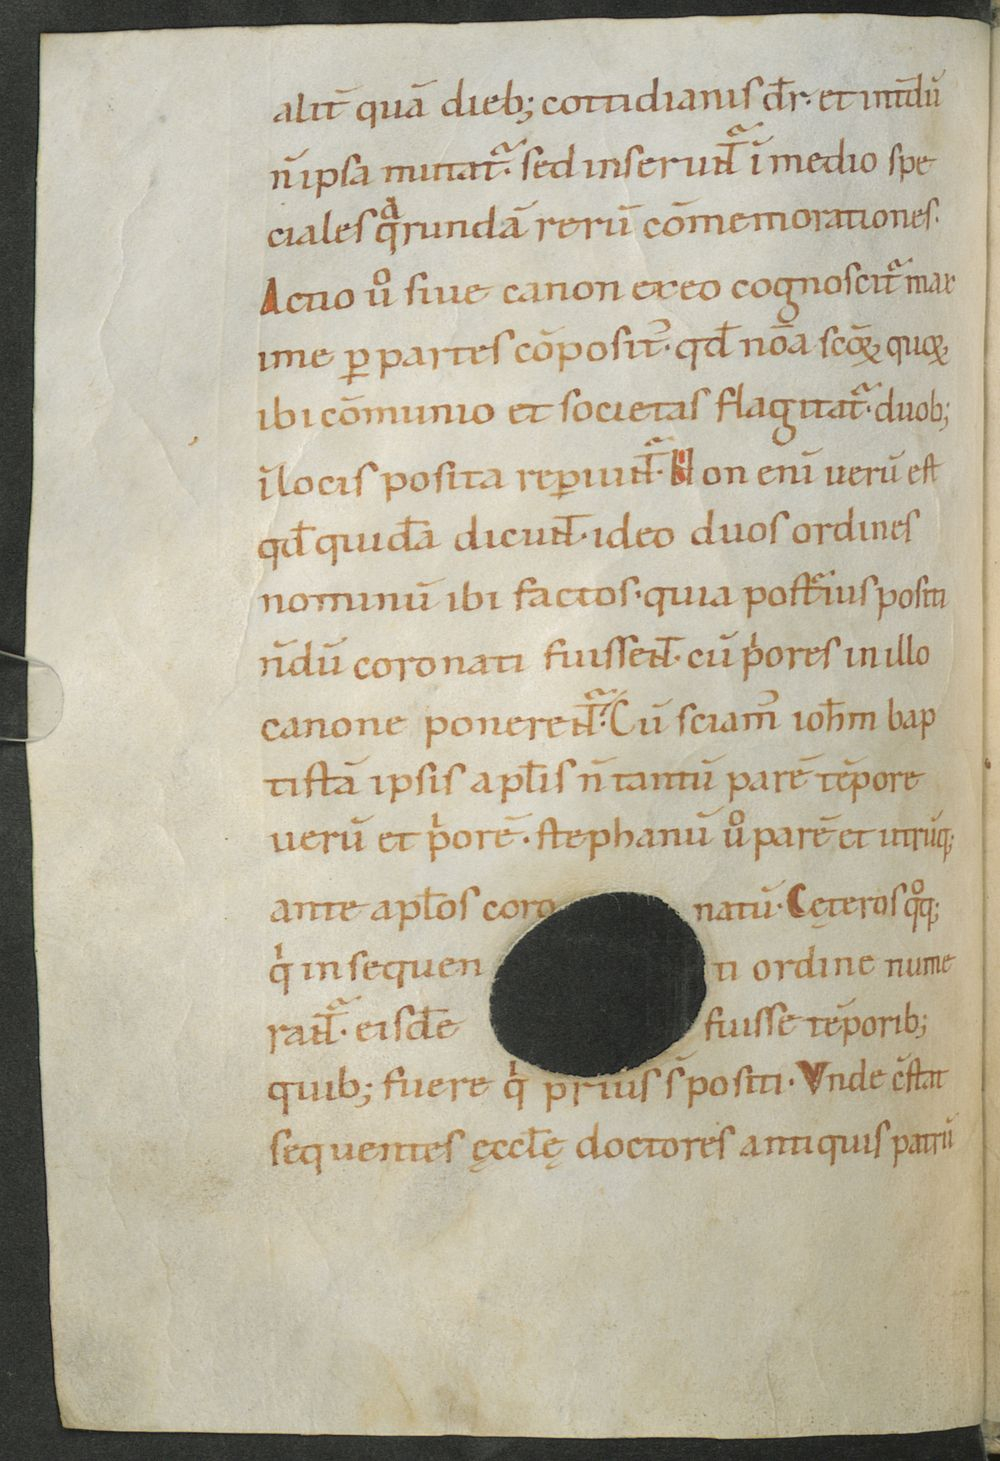 alit̄ quā dieb; cottidianis dr̄· et int̄dū
n̄ ipsa mutatᷓ· sed inseruntᷓ ī medio spe
ciales qͣrundā rerū cōmemorationes·
Actio ů siue canon ex eo cognoscitᷓ max
ime ꝑ partes cōposit᷒· qd̄ nōa scōꝝ quoꝝ
ibi cōmunio et societas flagitatᷓ· duob;
ī locis posita reꝑiuntᷓ· Non enī uerū est
qd̄ quidā dicunt̄· ideo duos ordines
nominū ibi factos· quia post̄ius positi
n̄dū coronati fuissent̄· cū pͥores in illo
canone ponerentᷓ· Cū sciam᷒ ioh̄m bap
tistā ipsis apl̄is n̄ tantū parē tēpore
uerū et pͥorē· stephanū ů parē et utrūq;
ante apl̄os coro natū· Cęteros qͦq;
qͥ in sequen ti ordine nume
rantᷓ· eisdē fuisse tēporib;
quib; fuere qͥ prius s̄ positi· Vnde c̄stat
sequentes ęccl̄ę doctores antiquis patrū